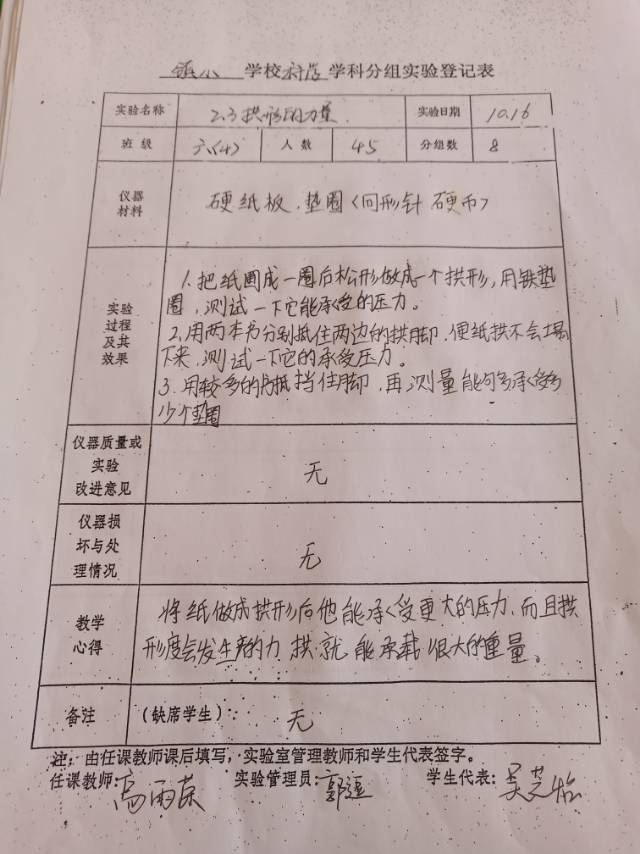 镇小 学校科学学科分组实验登记表
实验名称 2.3拱形的力量 实验日期 10.16
班 级 六(4) 人 数 45 分组数 8
仪器
材料
硬纸板、垫圈(回形针 硬币)
实验
过程
及其
效果
1.把纸圈成一圈后松形做成一个拱形,用铁垫
圈,测试一下它能承受的压力。
2.用两本书分别抵住两边的拱脚,使纸拱不会塌
下来,测试一下它的承受压力。
3.用较多的书抵挡住脚,再测量能够承受多
少个垫圈
仪器质量或
实验
改进意见
无
仪器损
坏与处
理情况
无
教学
心得
将纸做成拱形后他能承受更大的压力,而且拱
形度会发生的力 拱 就 能承载很大的重量。
备注 (缺席学生): 无
注:由任课教师课后填写,实验室管理教师和学生代表签字。
任课教师: 高雨 实验管理员: 郭 学生代表: 吴芝怡